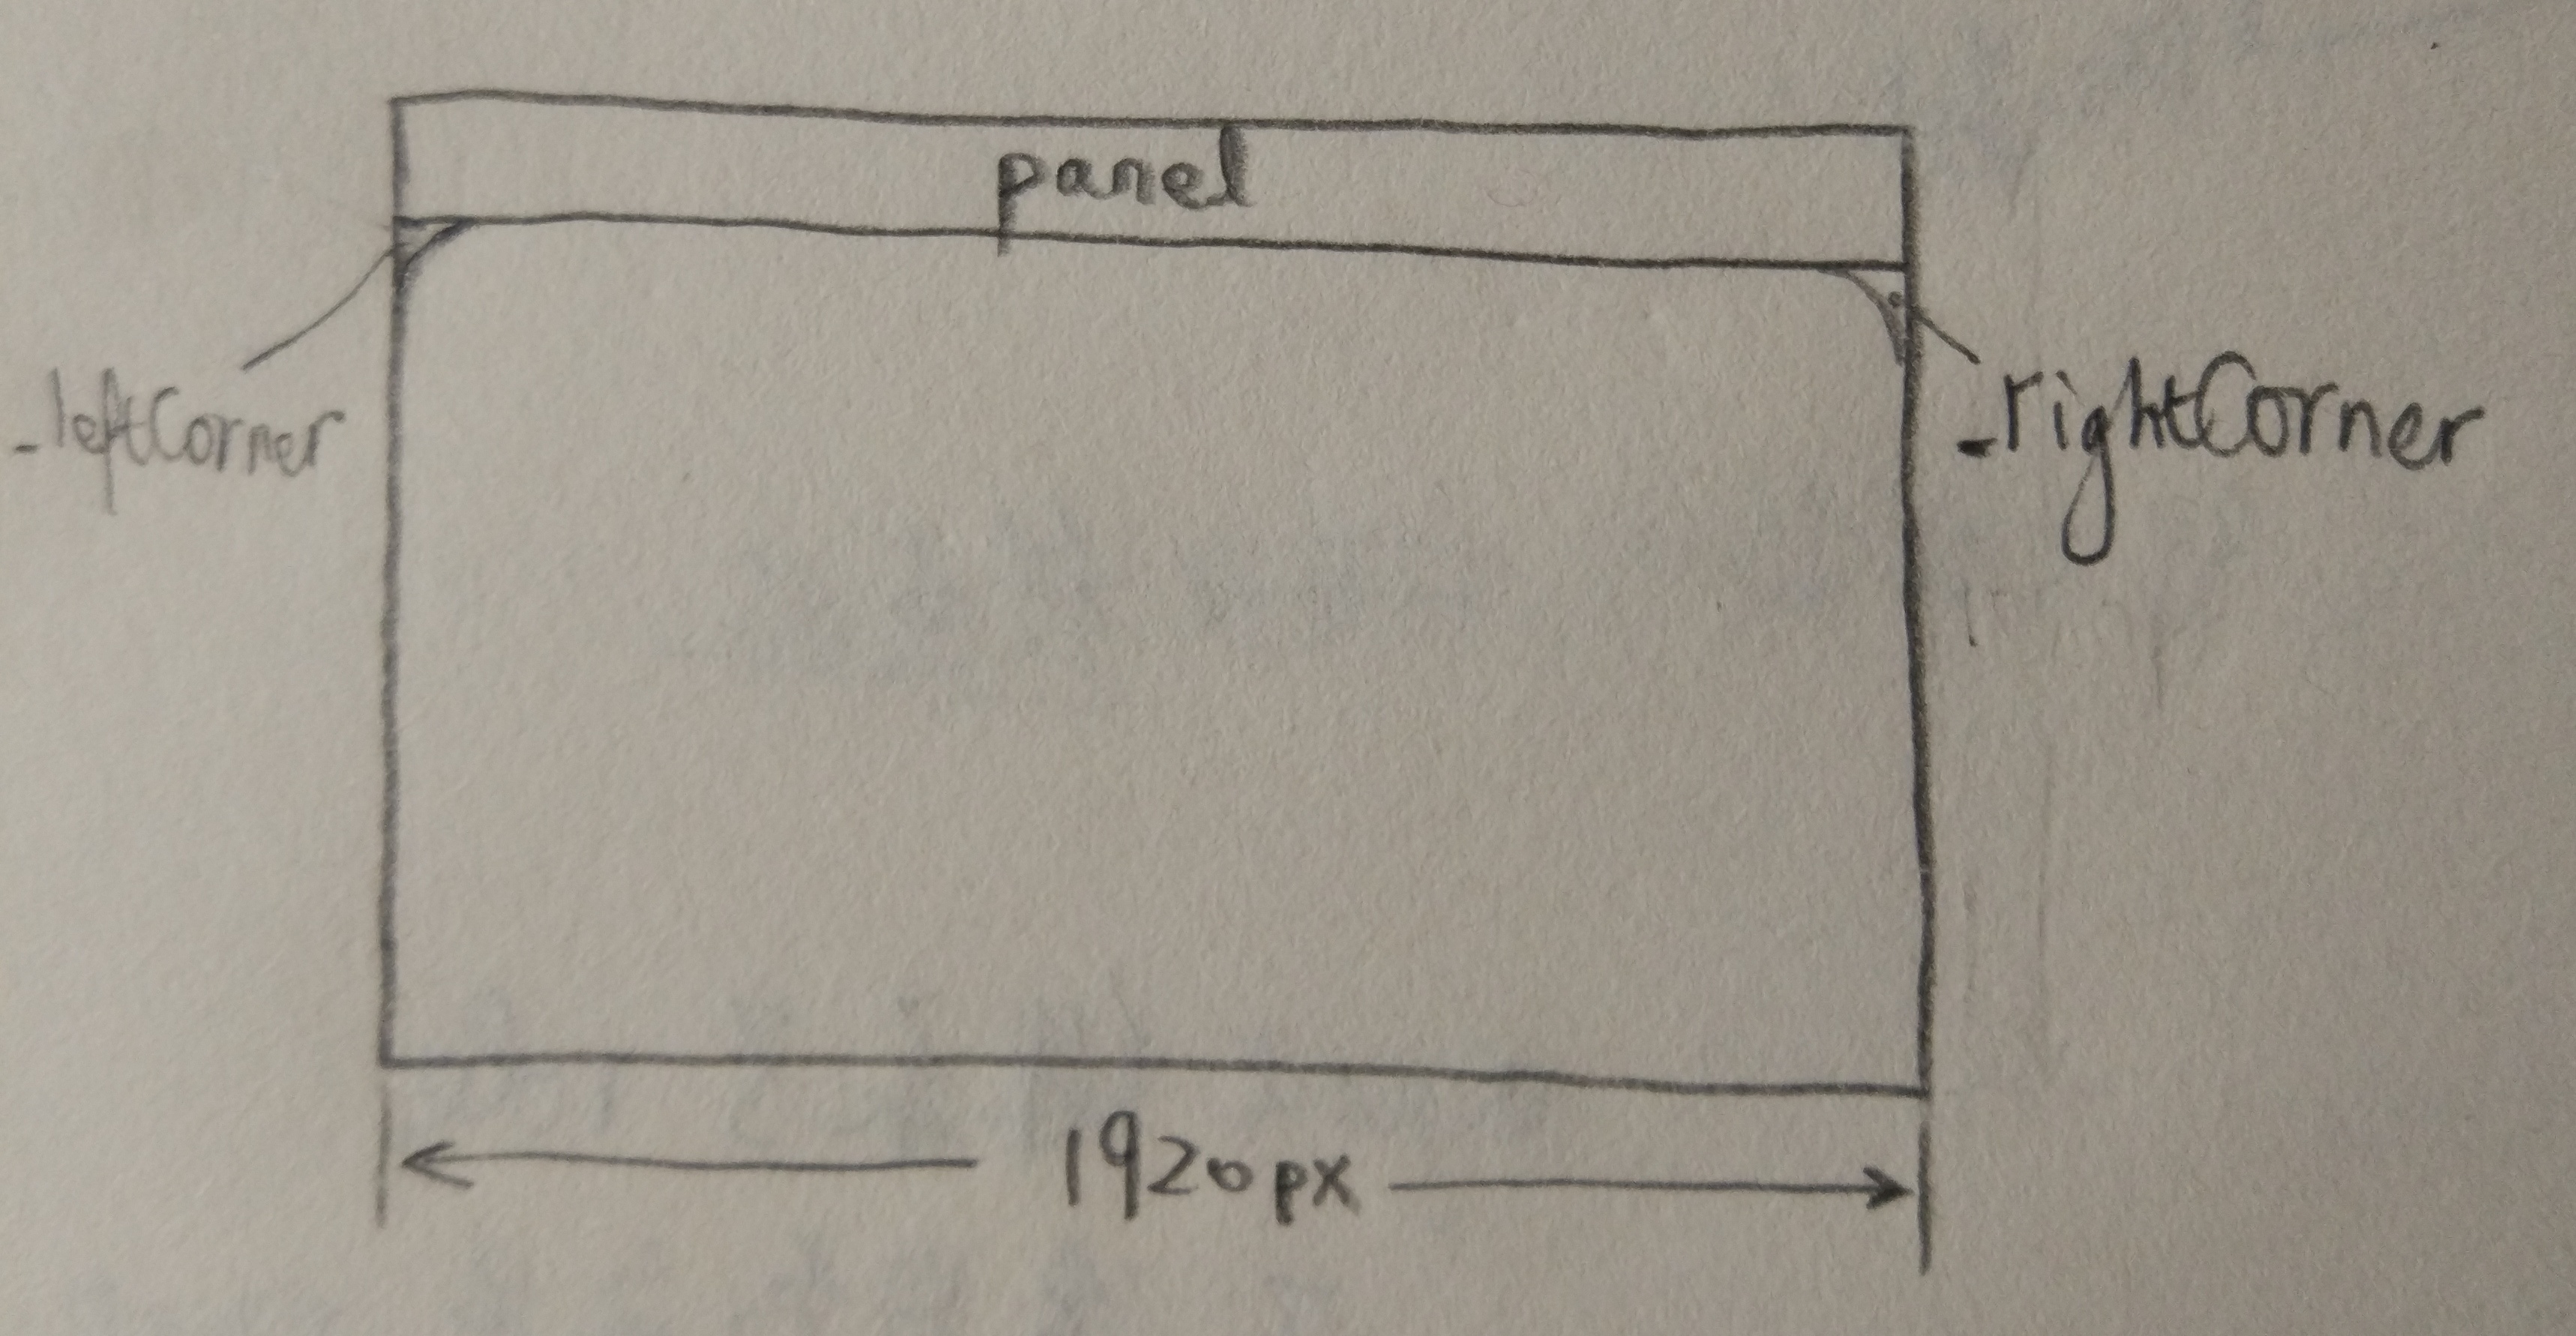 panel
-leftCorner
-rightCorner
1920px